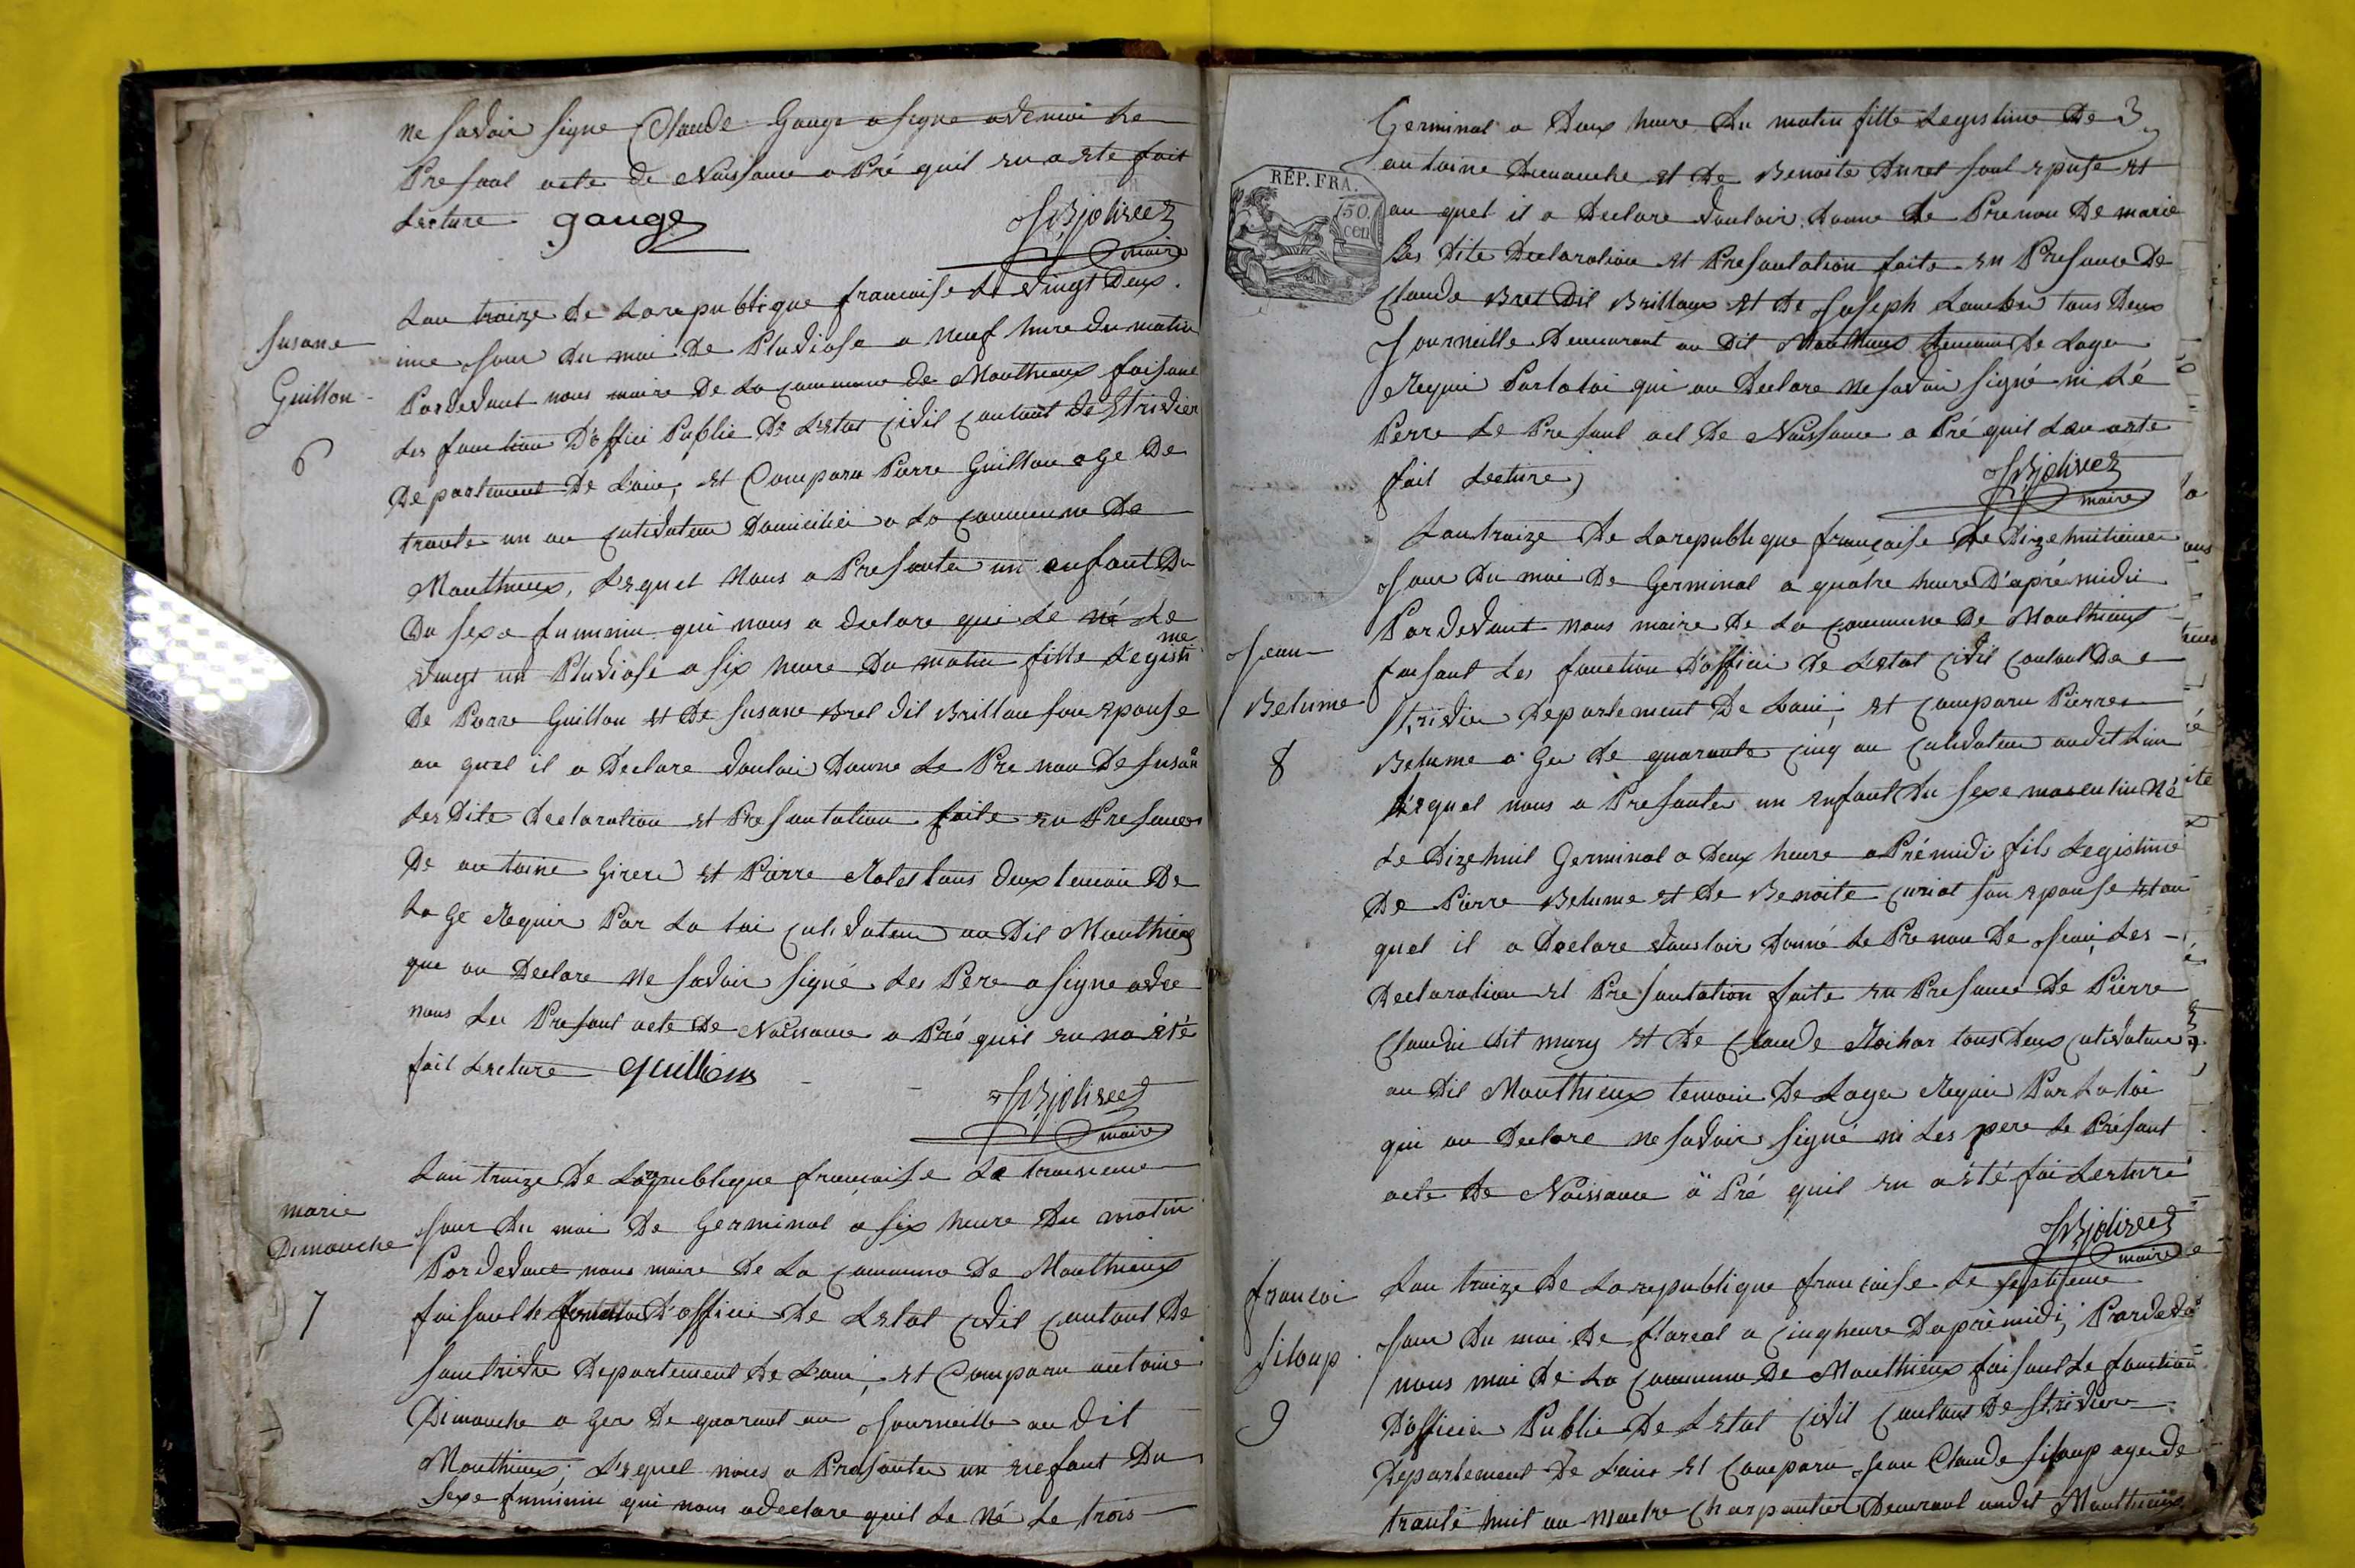 ne savoir signe Claude Gauge a signe avé moi Le
Presant acte de Naissance a Pré quil en a ete fait
Lecture gauge JBjolivet
maire
Lan traize De Larepublique francaise Le vingt Deux
susane
Guillon
6
ime Jour du moi De Pludiose a neuf hure du matin
Pardevant nous maire De La Commune de Monthieux faisant
Les fonction D'offici Public De L'etat Civil Cantont de Strivier
Departement De Lain, et Comparu Pierre Guillon age De
trante un an Cultivateur Domicilié a La Commune De
Monthieux, Lequel Nous a Presanter un enfant Du
Du sexe fuminin qui nous a declare qui Le né Le
vingt un Pludiose a six heure Du matin fille Legisti
me
De Pierre Guillon et De susane Bret dit Brillon son epouse
au quel il a Declare vouloir Donne Le Pre nom De susan
Les Dite Declaration et Presantation faite en Presance
De antoine Girere et Pierre Rolet tous deux temoin De
La Ge Requir Par La Loi Cultivateur au Dit Monthieux
que on Declare ne savoir signé Les Père a signe avec
nous Le Presant acte De Naissance a Pré quil en na été
fait Lecture guillion
JBjolivet
maire
Lan traize De Larepublique francaise Le troisieme
marie
Dimanche
7
Jour Du moi De Germinal a six heure Du matin
Pardevant nous maire De La Commune De Monthieux
faisant le D'offici De Letat Civil Cantont De
Saintrivier Departement De Lain, et Comparu antoine
Dimanche a Ger De quarant an Journaille au Dit
Monthieux; Lequel nous a Presanter un enfant Du
Sexe fuminin qui nous a declare quil Le Né Le trois
Germinal a Deux heure Du matin fille Legistime De
3
antoine Dimanche et De Benoite Duret sont epuse et
RÉP. FRA.
50.
cen
au quel il a Declare vouloir donne Le Prenom De marie
Les Dite Declaration et Presantation faite en Presance De
Claude Bret Dit Brillon et De Joseph Lamber tous Deux
Journaille Demeurant au Dit Monthieux temoin De Lager
Requi Par la Loi qui on Declare ne savoir signé ni Lé
Perre Le Presant act De Naissance a Pré quil Lan a ete
fait Lecture
JBjolivet
maire
Lan traize De Larepublique française Le Dizehuitieme
Jour Du moi De Germinal a quatre heure D'apré midi
Pardevant nous maire De La Commune De Monthieux
Jean
Betume
8
faisant Les fonction D'offici De Letat Civil Cantont De
Strivier Departement De Lain; et Comparu Pierre
Betume a Ger de quarante Cinq an Cultivateur audit Lieu
Lequel nous a Presanter un enfant Du sexe masculin Né
Le Dizehuit Germinal a Deux heure a Prémidi fils Legistime
De Pierre Betume et De Benoite Curiat son epouse et au
quel il a Declare vouloir Donné Le Pre nom De Jean, Les
Declaration et Presantation faite en Presance De Pierre
Claude dit mury et De Claude Rochar tous Deux Cultivateur
au Dit Monthieux temoin De Lager Requir Par La Loi
qui on Declare ne savoir signé ni Les pere Le Présant
acte De Naissance a Pré quil en a été fai Lecture
JBjolivet
maire
francoi
siloup
9
Lan traize De Larepublique francaise Le septieme
Jour Du moi De floreal a Cinq heure D'aprémidi, Pardeva
nous mai De La Commune De Monthieux faisant Le fonction
D'officier Public De Letat Civil Cantont De Strivier
Departement De Lain et Comparu Jean Claude siloup age de
trante huit an Maitre Charpantier Demeurant audit Monthieux